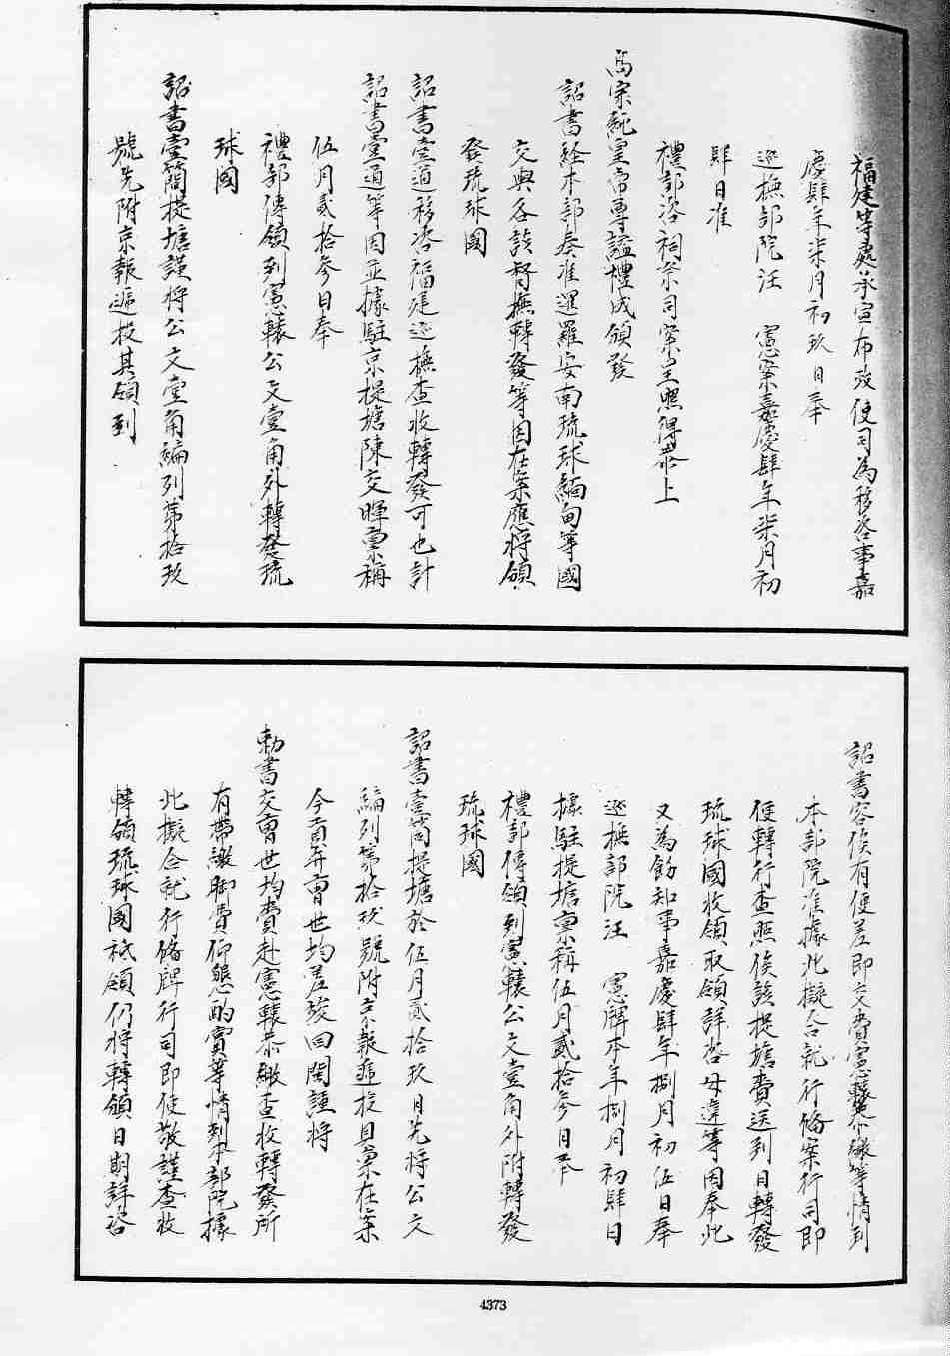 福建等處承宣布政使司為移咨事嘉
慶肆年柒月初玖日奉
巡撫部院汪　憲案嘉慶肆年柒月初
肆日准
禮部咨祠祭司案呈照得恭上
高宗純皇帝尊諡禮成頒發
詔書經本部奏准暹羅安南琉球緬甸等國
交與各該督撫轉發等因在案應將頒
發琉球國
詔書壹通移咨福建巡撫查收轉發可也計
詔書壹通等因並據駐京提塘陳交暉稟稱
伍月貳拾參日奉
禮部傳領到憲轅公文壹角外轉發琉
球國
詔書壹筒提塘謹將公文壹角編列第拾玖
號先附京報遞投其領到
詔書容俟有便差即交賫憲轅恭繳等情到
本部院准據此擬合就行備案行司即
便轉行查照俟該提塘賫送到日轉發
琉球國收領取領詳咨毋違等因奉此
又為飭知事嘉慶肆年捌月初伍日奉
巡撫部院汪　憲牌本年捌月初肆日
據駐提塘稟稱伍月貳拾參日奉
禮部傳領到憲轅公文壹角外附轉發
琉球國
詔書壹筒提塘於伍月貳拾玖日先將公文
編列第拾玖號附京報遞投具稟在案
今有弁曹世均差竣回閩謹將
勅書交曹世均賫赴憲轅恭繳查收轉發所
有帶繳脚費仰懇酌賞等情到本部院據
此擬合就行備牌行司即便敬謹查收
轉領琉球國祗領仍將轉領日期詳咨
4373